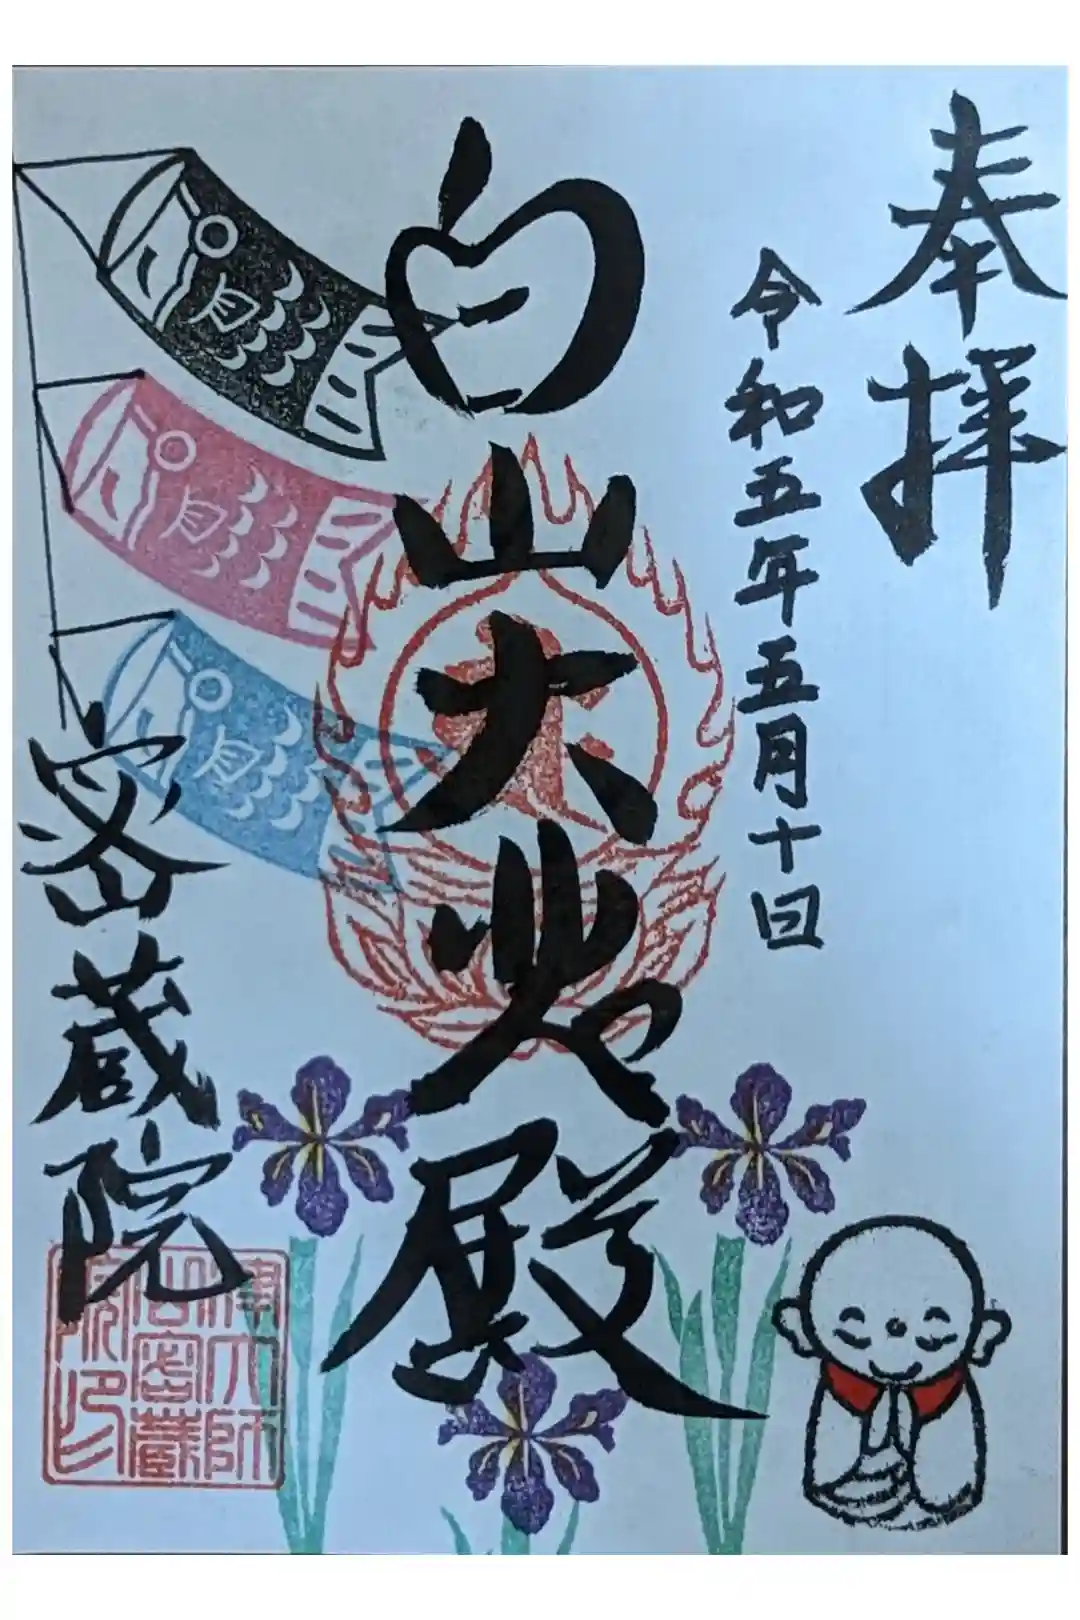 奉拝
令和五年五月十日
白山大悲殿
密蔵院